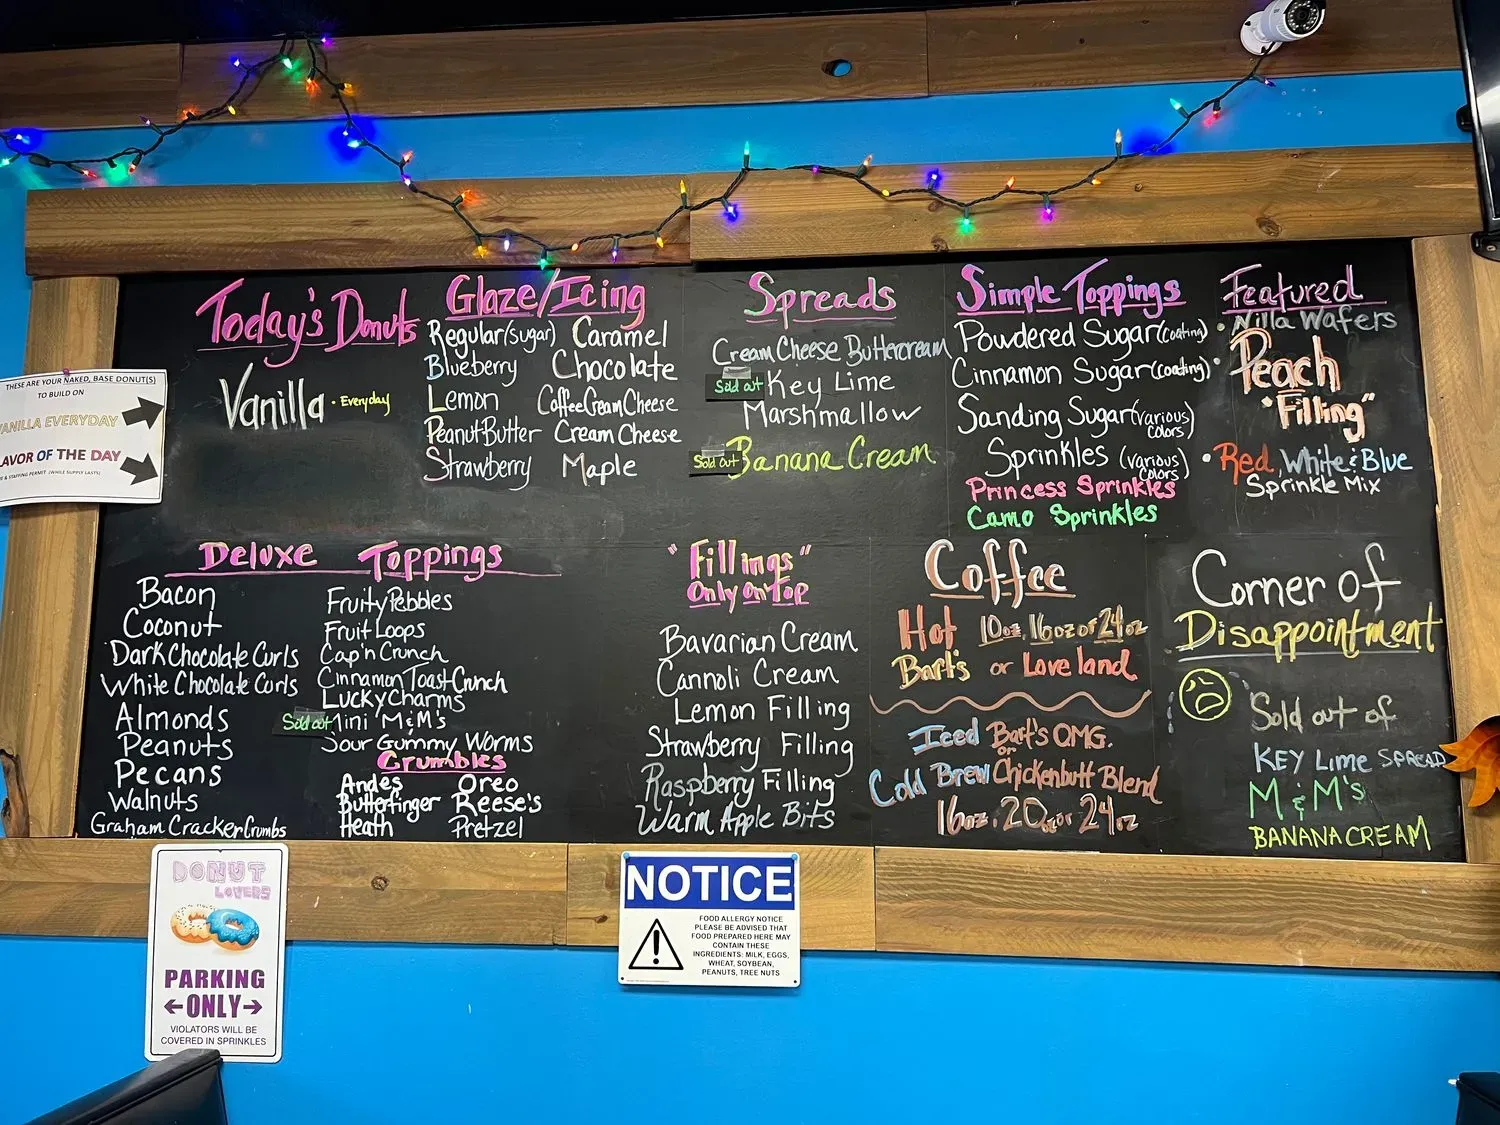 THESE ARE YOUR NAKED, BASE DONUT(S)
TO BUILD ON
VANILLA EVERYDAY
LAVOR OF THE DAY
& STAFFING PERMIT (WHILE SUPPLY LASTS)
Today's Donuts
Vanilla • Everyday
Glaze/Icing
Regular (sugar) Caramel
Blueberry Chocolate
Lemon Coffee Cream Cheese
Peanut Butter Cream Cheese
Strawberry Maple
Spreads
Cream Cheese Buttercream
Sold out Key Lime
Marshmallow
Sold out Banana Cream
Simple Toppings
Powdered Sugar (coating)
Cinnamon Sugar (coating)
Sanding Sugar (various colors)
Sprinkles (various colors)
Princess Sprinkles
Camo Sprinkles
Featured
• Nilla Wafers
• Peach
"Filling"
• Red, White & Blue
Sprinkle Mix
Deluxe Toppings
Bacon
Coconut
Dark Chocolate Curls
White Chocolate Curls
Almonds
Peanuts
Pecans
Walnuts
Graham Cracker Crumbs
Fruity Pebbles
Fruit Loops
Cap'n Crunch
Cinnamon Toast Crunch
Lucky Charms
Sold out Mini M&M's
Sour Gummy Worms
Crumbles
Andes Oreo
Butterfinger Reese's
Heath Pretzel
"Fillings"
Only on Top
Bavarian Cream
Cannoli Cream
Lemon Filling
Strawberry Filling
Raspberry Filling
Warm Apple Bits
Coffee
Hot 10oz, 16oz or 24oz
Bart's or Loveland
Iced Bart's OMG.
or
Cold Brew Chickenbutt Blend
16oz. 20oz or 24oz
Corner of
Disappointment
Sold out of
KEY Lime SPREAD
M & M's
BANANA CREAM
DONUT
LOVERS
PARKING
ONLY
VIOLATORS WILL BE
COVERED IN SPRINKLES
NOTICE
FOOD ALLERGY NOTICE
PLEASE BE ADVISED THAT
FOOD PREPARED HERE MAY
CONTAIN THESE
INGREDIENTS: MILK, EGGS,
WHEAT, SOYBEAN,
PEANUTS, TREE NUTS